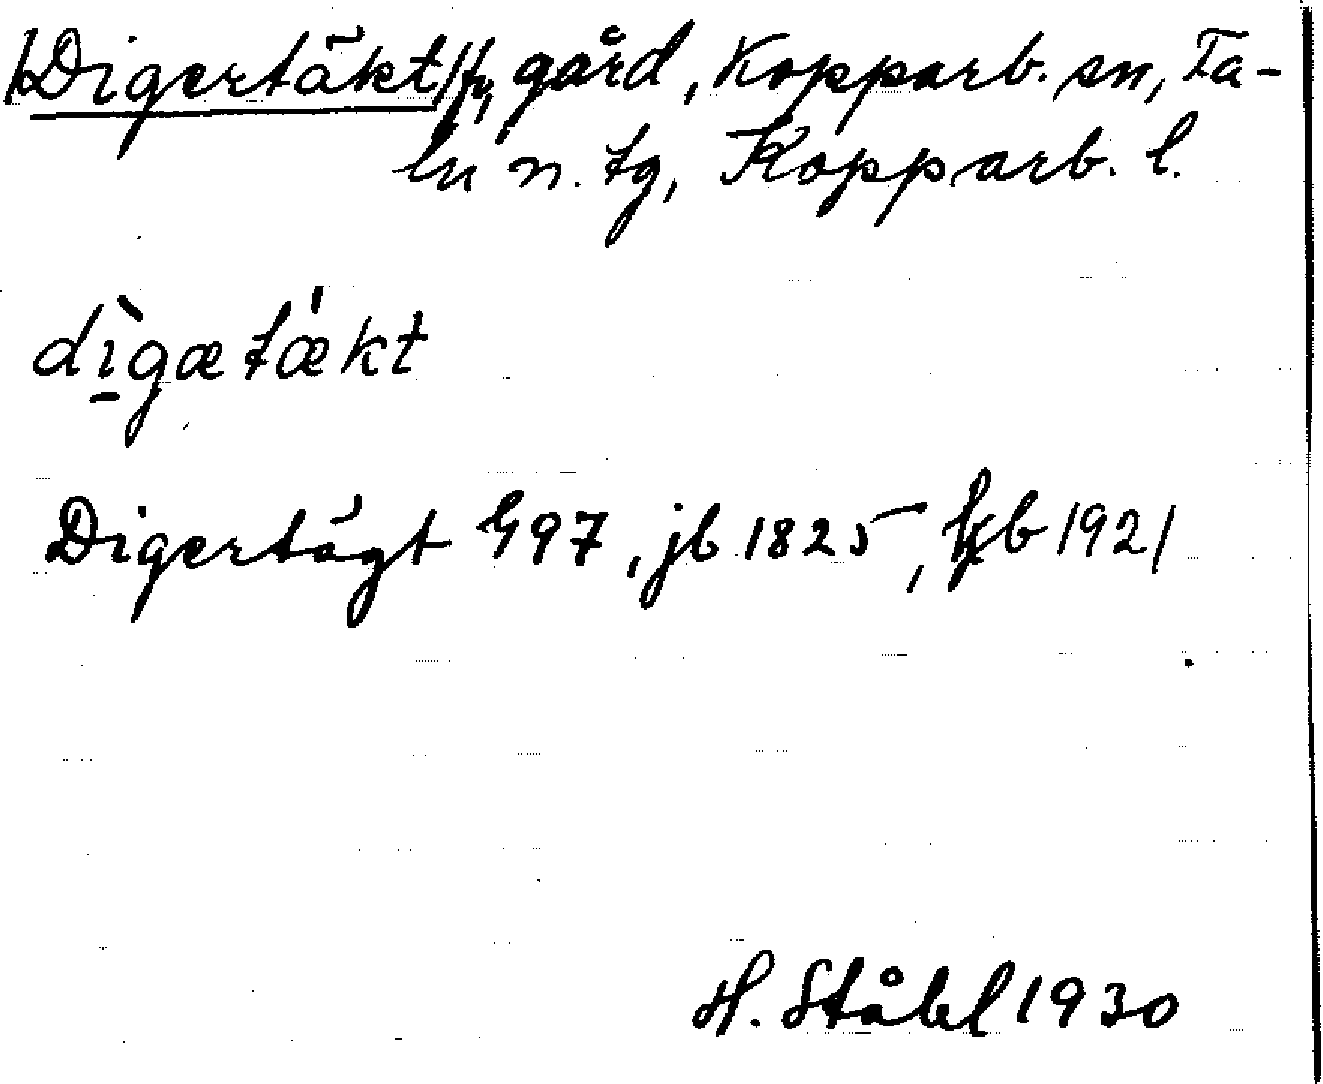 /Digertäkt/, gård, Kopparb. sn, Fa-
lu n. tg, Kopparb. l.
dìgætækt
Digertägt G97, jb 1825, kb 1921
H. Ståhl 1930